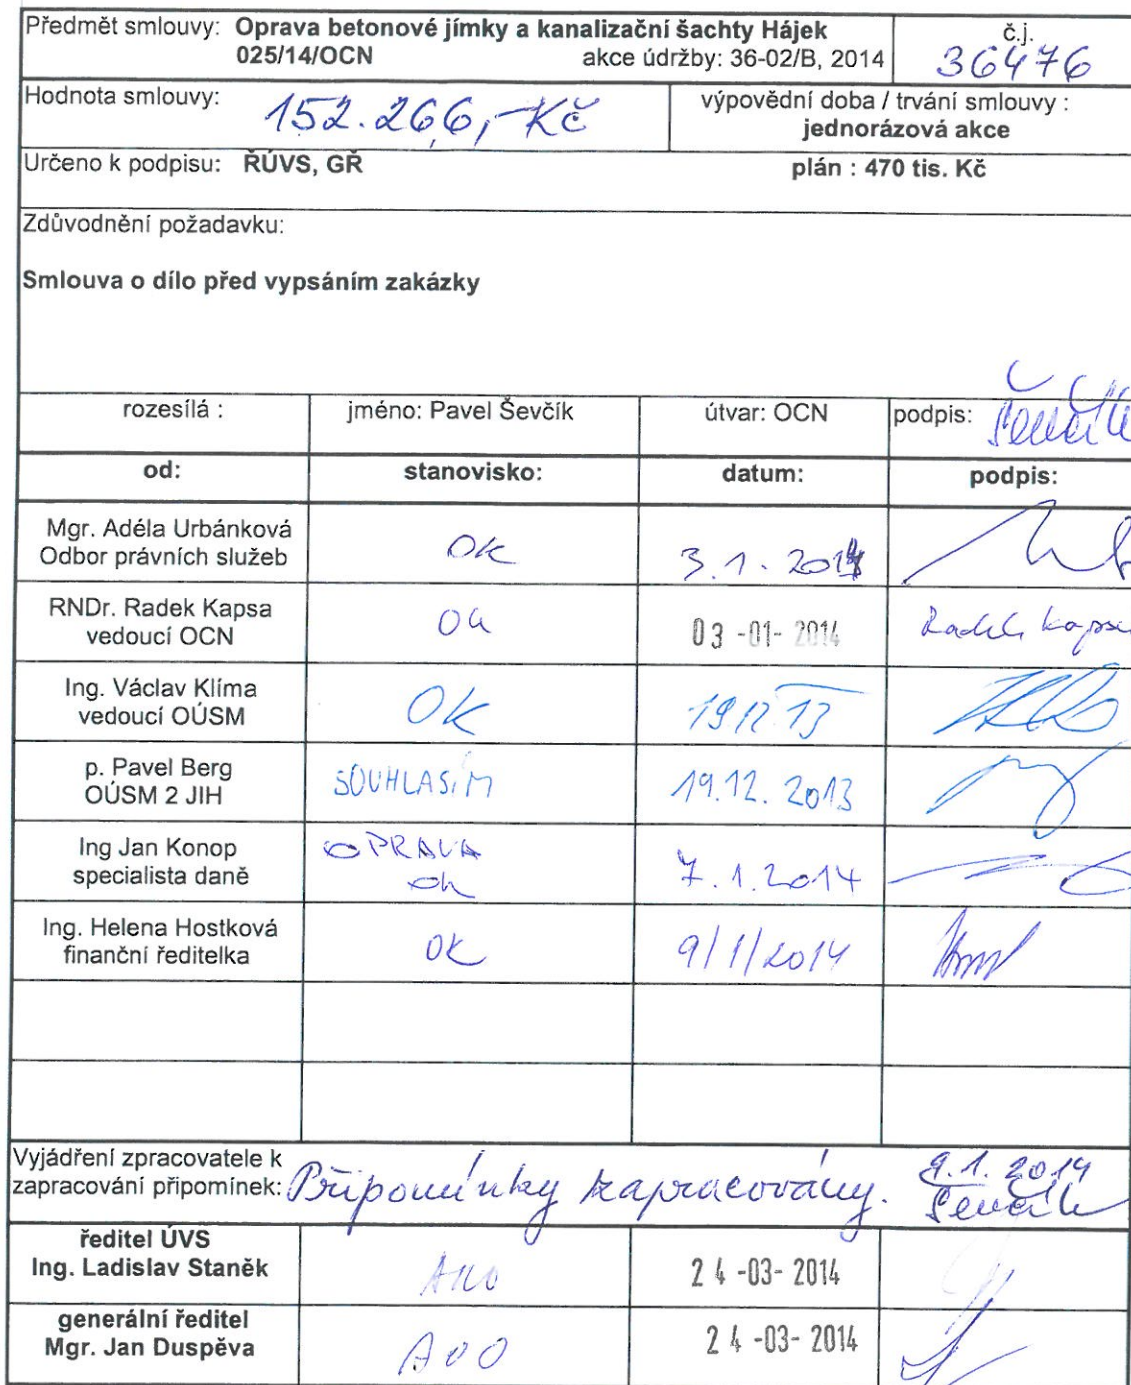 Předmět smlouvy: Oprava betonové jímky a kanalizační šachty Hájek č.j.
025/14/OCN akce údržby: 36-02/B, 2014 36476
Hodnota smlouvy: 152.266,-Kč výpovědní doba / trvání smlouvy :
jednorázová akce
Určeno k podpisu: ŘÚVS, GŘ plán : 470 tis. Kč
Zdůvodnění požadavku:
Smlouva o dílo před vypsáním zakázky
rozesílá : jméno: Pavel Ševčík útvar: OCN podpis: Ševčík
od: stanovisko: datum: podpis:
Mgr. Adéla Urbánková
Odbor právních služeb OK 3.1.2014
RNDr. Radek Kapsa
vedoucí OCN Ok 03-01-2014 Radek Kapsa
Ing. Václav Klíma
vedoucí OÚSM OK 19/12 13
p. Pavel Berg
OÚSM 2 JIH SOUHLASÍM 19.12.2013
Ing Jan Konop OPRAVA
specialista daně ok 7.1.2014
Ing. Helena Hostková
finanční ředitelka OK 9/1/2014
Vyjádření zpracovatele k 9.1.2014
zapracování připomínek: Připomínky zapracovány. Ševčík
ředitel ÚVS
Ing. Ladislav Staněk ANO 24-03-2014
generální ředitel
Mgr. Jan Duspěva ANO 24-03-2014